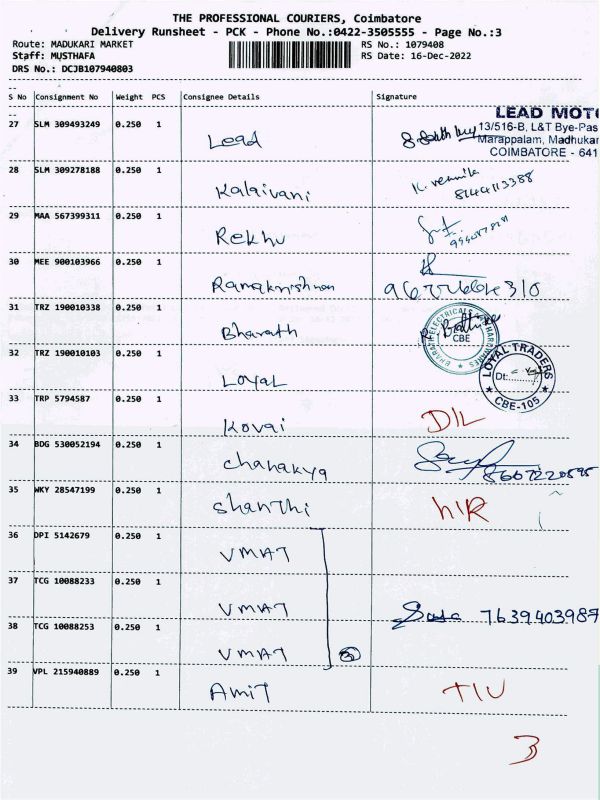 THE PROFESSIONAL COURIERS, Coimbatore
Delivery Runsheet - PCK - Phone No.:0422-3505555 - Page No.:3
Route: MADUKARI MARKET RS No.: 1079408
Staff: MUSTHAFA RS Date: 16-Dec-2022
DRS No.: DCJB107940803
S No Consignment No Weight PCS Consignee Details Signature
LEAD MOTO
13/516-B, L&T Bye-Pas
Marappalam, Madhukar
COIMBATORE - 641
27 SLM 309493249 0.250 1
Lead
28 SLM 309278188 0.250 1
Kalaivani K. vennila
8144113388
29 MAA 567399311 0.250 1
Rekhu
30 MEE 900103966 0.250 1
Ramakrishnan
31 TRZ 190010338 0.250 1
Bharath
BHARATH ELECTRICALS & HARDWARES
CBE
32 TRZ 190010103 0.250 1
Loyal
LOYAL TRADERS
Dt:
CBE-105
33 TRP 5794587 0.250 1
Kovai DIL
34 BDG 530052194 0.250 1
chanakya 8667220595
35 WKY 28547199 0.250 1
Shanthi NIR
36 DPI 5142679 0.250 1
VMAT
37 TCG 10088233 0.250 1
VMAT 7639403987
38 TCG 10088253 0.250 1
VMAT 3
39 VPL 215940889 0.250 1
Amit TIU
3